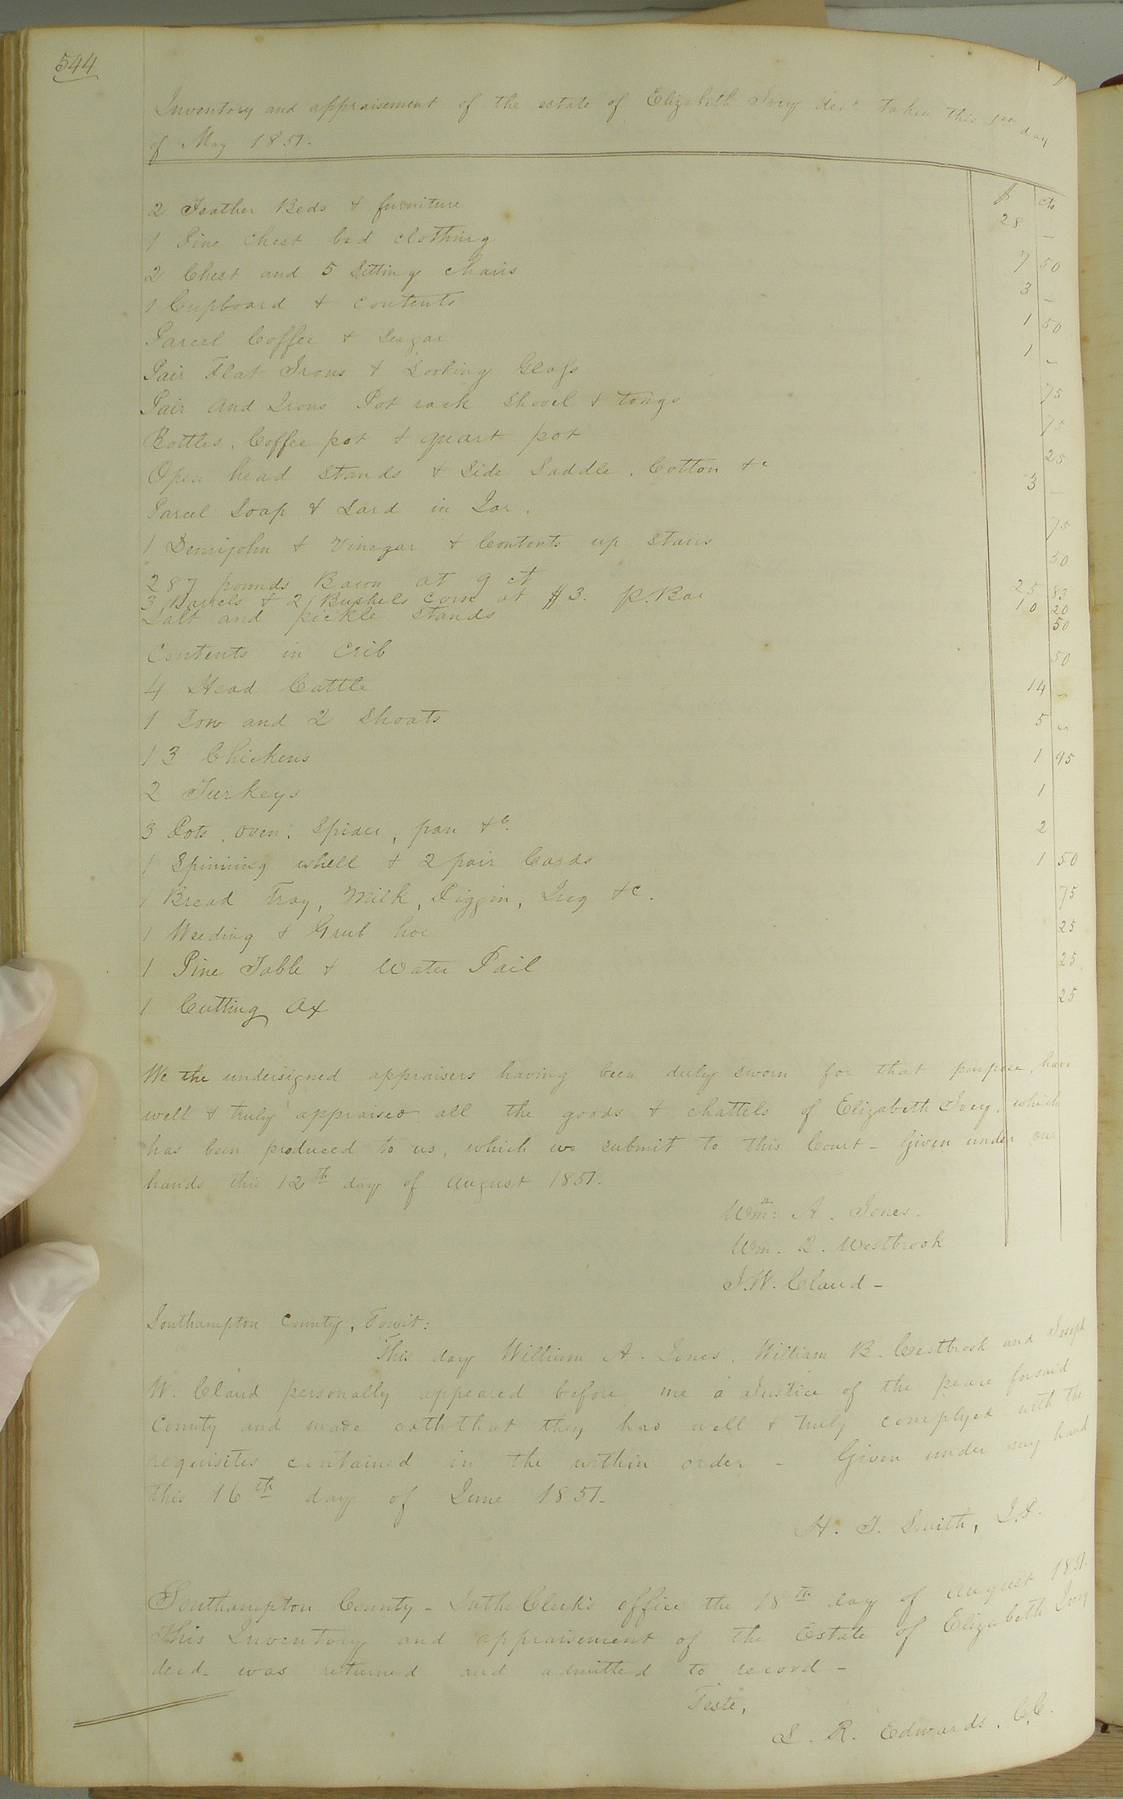 544
Inventory and appraisement of the estate of Elizabeth Ivey decd taken this day
of May 1851.
$ cts
2 Feather Beds & furniture 28 –
1 Pine Chest bed clothing 7 50
2 Chest and 5 Sitting Chairs 3 –
1 Cupboard & contents 1 50
Parcel Coffee & Sugar 1 –
Pair Flat Irons & Looking Glass 75
Pair And Irons Pot rack Shovel & tongs 75
Bottles, Coffee pot & quart pot 25
Open head Stands & Side Saddle, Cotton &c 3 –
Parcel Soap & Lard in Jar. 75
1 Demijohn & Vinegar & Contents up Stairs 50
287 pounds Bacon at 9 ct 25 83
3 Barrels & 2 Bushels Corn at $3. p. Bar 10 20
Salt and pickle Stands 50
Contents in Crib 50
4 Head Cattle 14 –
1 Sow and 2 Shoats 5 –
13 Chickens 1 95
2 Turkeys 1
3 Pots, oven, Spider, pan &c. 2
1 Spinning whell & 2 pair Cards 1 50
1 Bread Tray, Milk, Piggin, Jug &c. 75
1 Weeding & Grub hoe 25
1 Pine Table & Water Pail 25
1 Cutting Ax 25
We the undersigned appraisers having been duly sworn for that purpose, have
well & truly appraised all the goods & chattels of Elizabeth Ivey, which
has been produced to us, which we submit to this Court – Given under our
hands this 12th day of August 1851.
Wm. A. Jones.
Wm. B. Westbrook
J. W. Claud –
Southampton County, Towit:
This day William A. Jones, William B. Westbrook and Joseph
W. Claud personally appeared before me a Justice of the peace forsaid
County and made oath that they has well & truly complyed with the
requisites contained in the within order – Given under my hand
this 16th day of June 1851.
H. T. Smith, J.P.
Southampton County – In the Clerk's office the 18th day of August 1851.
This Inventory and appraisement of the Estate of Elizabeth Ivey
decd. was returned and admitted to record –
Teste,
L. R. Edwards, C.C.